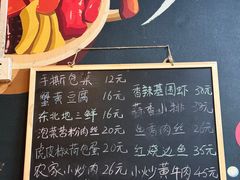 手撕包菜 12元
蟹黄豆腐 16元
东北地三鲜 16元
泡菜苕粉肉丝 20元
虎皮椒荷包蛋 20元
农家小炒肉 26元
香辣基围虾 38元
蒜香小排 38元
鱼香肉丝 20元
红烧边鱼 35元
小炒黄牛肉 45元